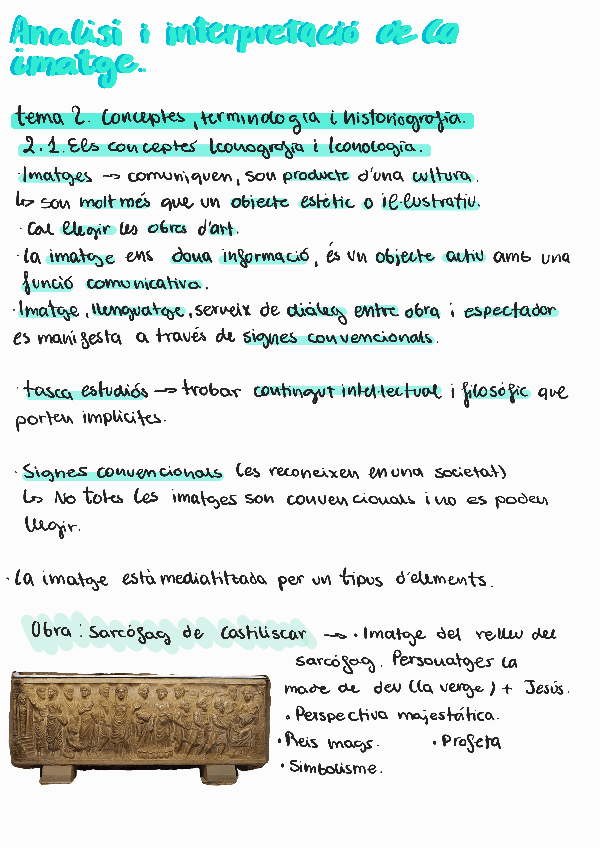 Analisi i interpretació de la
imatge.
tema 2. Conceptes, terminologia i historiografia.
2.1. Els conceptes Iconografia i Iconologia.
· Imatges → comuniquen, son producte d'una cultura.
↳ son molt més que un objecte estètic o il·lustratiu.
· Cal llegir les obres d'art.
· La imatge ens dona informació, és un objecte actiu amb una
funció comunicativa.
· Imatge, llenguatge, serveix de diàleg entre obra i espectador
es manifesta a través de signes convencionals.
· tasca estudiós → trobar contingut intel·lectual i filosòfic que
porten implicites.
· Signes convencionals (es reconeixen en una societat)
↳ No totes les imatges son convencionals i no es poden
llegir.
· La imatge està mediatitzada per un tipus d'elements.
Obra: Sarcófag de Castiliscar → · Imatge del relleu del
sarcófag. Personatges la
mare de deu (la verge) + Jesús.
· Perspectiva majestática.
· Reis mags. · Profeta
· Simbolisme.